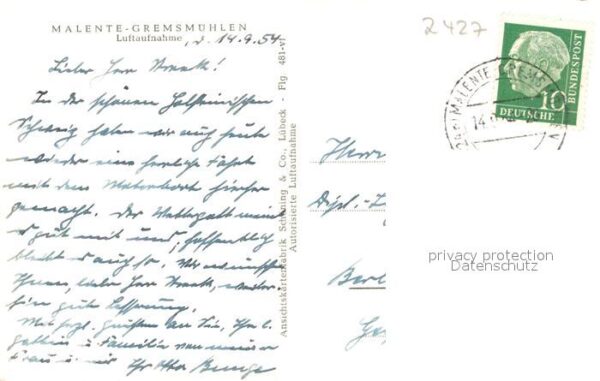 MALENTE-GREMSMÜHLEN
Luftaufnahme
d. 14.9.54
Lieber Herr
In der schönen Holsteinischen
Schweiz haben wir auch heute
wieder eine herrliche Fahrt
mit dem Motorboot hierher
gemacht. Der Wettergott meint
es gut mit uns, hoffentlich
bleibt es auch so. Wir wünschen
Ihnen, lieber Herr weiter-
hin gute Besserung.
Mit herzl. Grüßen an Sie, Ihre l.
Gattin u. Familie von meiner
Frau u. mir Ihr Otto
Ansichtskartenfabrik Schöning & Co., Lübeck - Flg 481-vf
Autorisierte Luftaufnahme
2427
MALENTE-GREMS
14.9
10
DEUTSCHE
BUNDESPOST
Herrn
Dipl.-I
Berl
privacy protection
Datenschutz